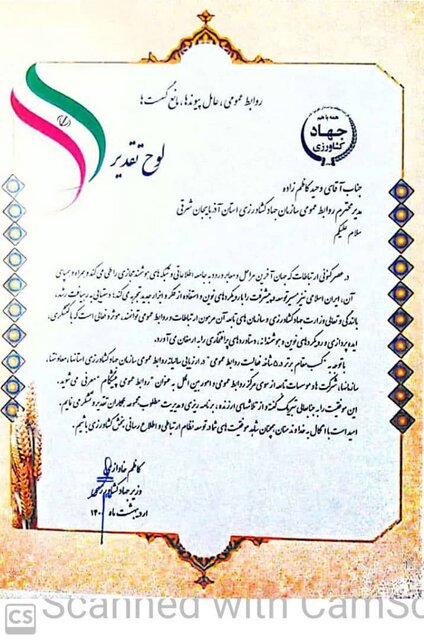 روابط عمومی، عامل پیوندها، مانع گسست‌ها
همه با هم
جهاد
کشاورزی
لوح تقدیر
جناب آقای وحید کاظم زاده
مدیر محترم روابط عمومی سازمان جهاد کشاورزی استان آذربایجان شرقی
سلام علیکم
در عصر کنونی ارتباطات که جهان آخرین مراحل و معابر ورود به جامعه اطلاعاتی و شبکه‌های هوشمند مجازی را طی می‌کند و همراه و همپای
آن، ایران اسلامی نیز مسیر توسعه و پیشرفت را با رویکردهای نوین و استفاده از تفکر و ابزار جدید تجربه می‌کند؛ دستیابی به رهیافت رشد،
بالندگی و تعالی وزارت جهاد کشاورزی و سازمان‌های تابعه آن مرهون ارتباطات و روابط عمومی توانمند، موثر و فعالی است که با کنشگری،
ایده پردازی و رویکردهای نوین و هوشمندانه، دستاوردهای را به ارمغان می‌آورد.
با توجه به کسب مقام برتر در ۵ شاخه فعالیت روابط عمومی" در ارزیابی سالیانه روابط عمومی سازمان جهاد کشاورزی استانها، معاونتها،
سازمانها، شرکت‌ها و موسسات تابعه از سوی مرکز روابط عمومی و امور بین الملل به عنوان "روابط عمومی پیشگام" معرفی می‌شوید.
این موفقیت را به جنابعالی تبریک گفته و از تلاشهای ارزنده، برنامه ریزی و مدیریت مطلوب مجموعه همکاران تقدیر و تشکر می‌نمایم.
امید است با اتکال به خداوند منان همچنان شاهد موفقیت‌های شما در توسعه نظام ارتباطی و اطلاع رسانی بخش کشاورزی باشیم.
کاظم خاوازی
وزیر جهاد کشاورزی
اردیبهشت ماه ۱۴۰۰
CS Scanned with CamSc